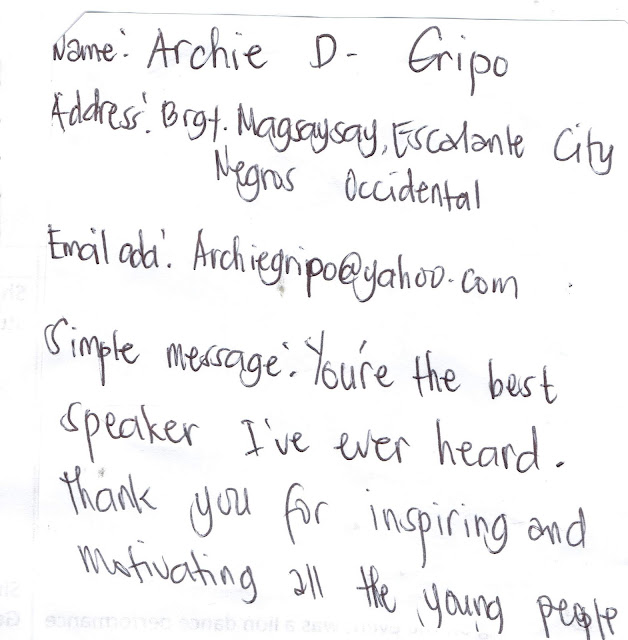 Name: Archie D- Gripo
Address: Brgy. Magsaysay, Escalante City
Negros Occidental
Email add: Archiegripo@yahoo.com
Simple message: You're the best
speaker I've ever heard.
thank you for inspiring and
motivating all the young people